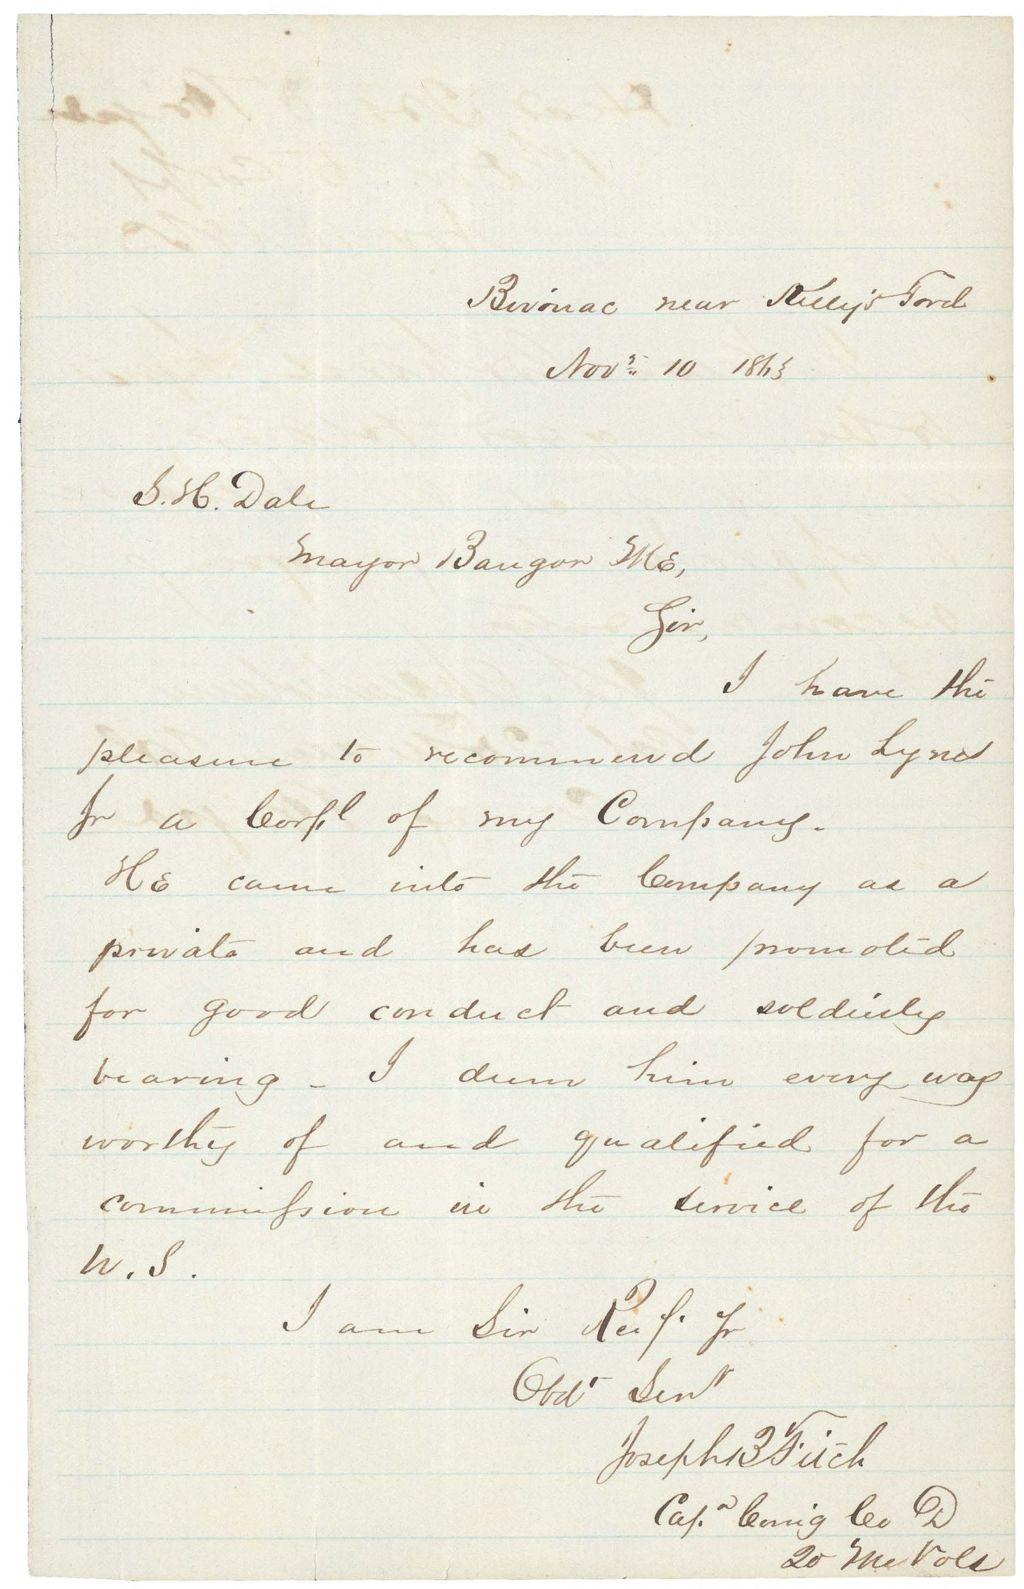 Bivouac near Kelly's Ford
Novr 10 1863
S. H. Dale
Mayor Bangor ME,
Sir,
I have the
pleasure to recommend John Lynes
Jr a Corpl of my Company.
HE came into the Company as a
private and has been promoted
for good conduct and soldierly
bearing - I deem him every way
worthy of and qualified for a
commission in the service of the
U. S.
I am Sir Resp. Yr
Obdt Servt
Joseph B Fitch
Capn Comg Co D
20 Me Vols